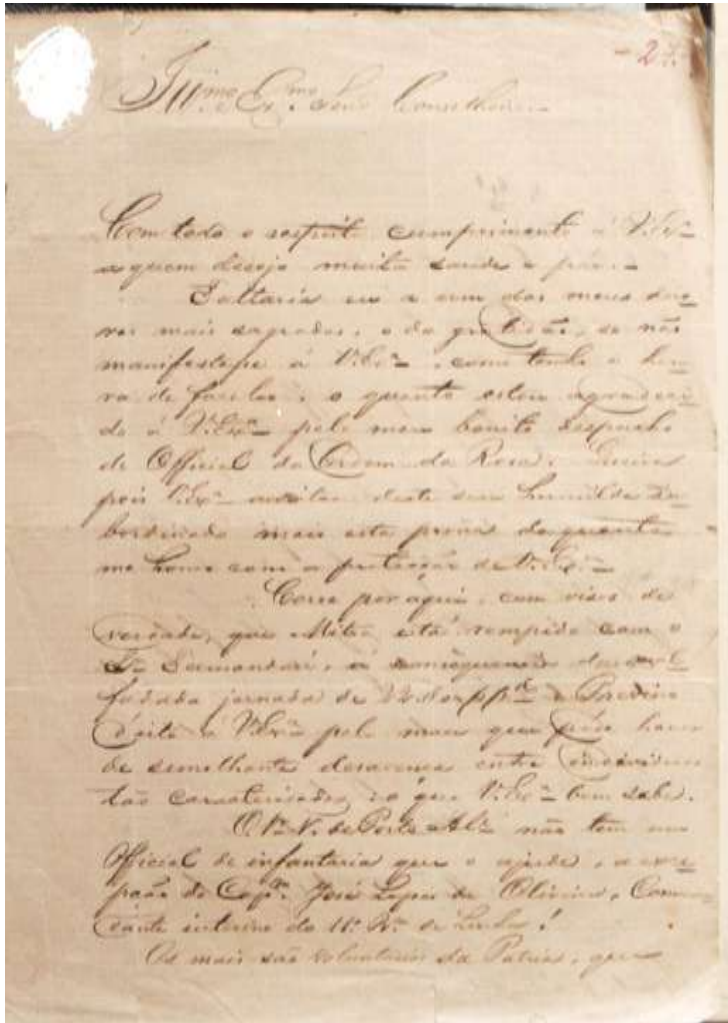 - 2
Ill.mo e Ex.mo Senr. Conselheiro
Com todo o respeito cumprimento á V.Ex.a
a quem desejo muita saude e paz.
Faltaria eu a um dos meus deve
res mais sagrados, o da gratidão, se não
manifestasse á V.Ex.a, como tenho a hon
ra de fazelo, o quanto estou agradeci
do á V.Ex.a pelo meu bonito despacho
de Official da Ordem da Rosa. Queira
pois V.Ex.a aceitar deste seu humilde Su
bordinado mais esta prova do quanto
me honro com a protecção de V.Ex.a
Corre por aqui, com visos de
verdade, que Mitre está rompido com o
Tamandaré, em consequencia da mal
fadada jornada de 22 de
á V.Ex.a pelo mau que pode haver
de semelhante desavença entre individuos
tão caracterisados, o que V.Ex.a bem sabe.
O V. de Porto Alê não tem um
Official de infantaria que o ajude, a exce
pção do Cap.m José Lopes de Oliveira, Comman
dante interino do 11.º de Linha!
Os mais são voluntarios da Patria, que